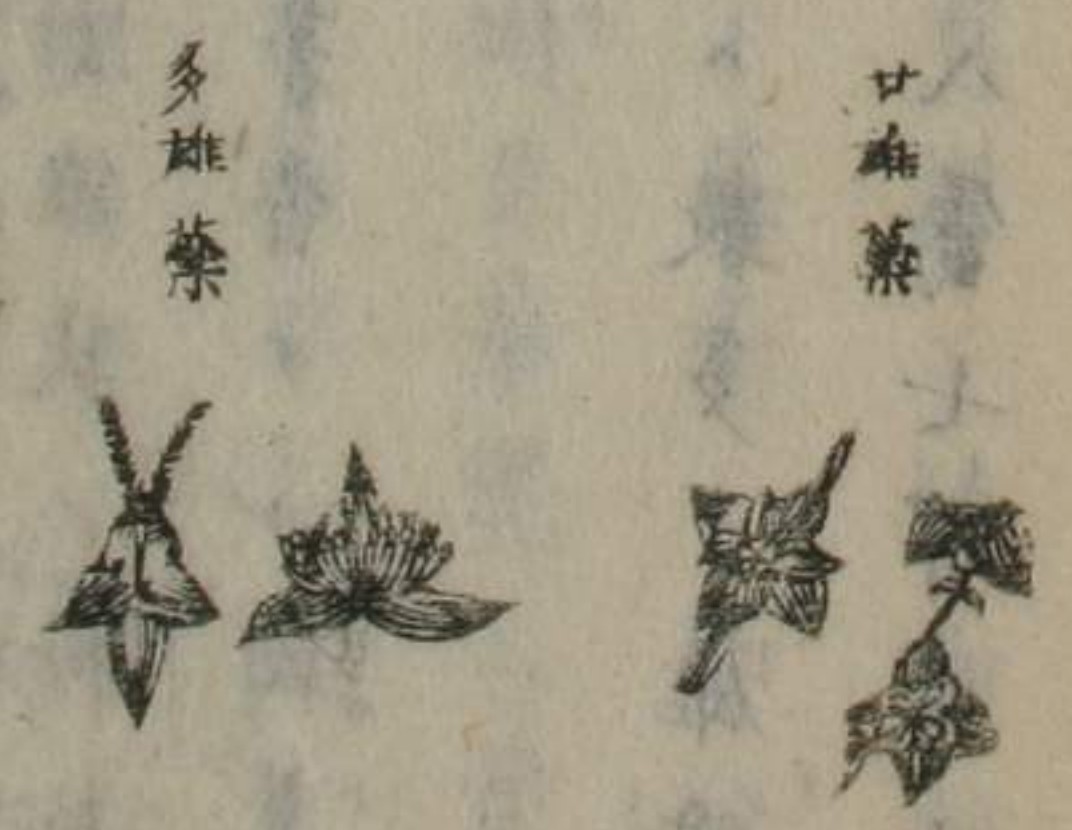 廿雄蘂
多雄蘂